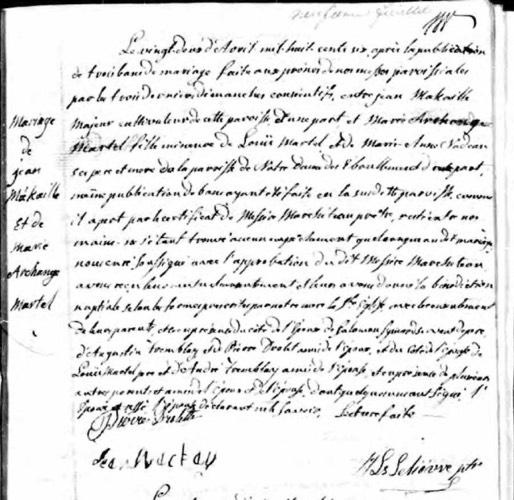 Le vingt deux d'Avril mil huit cents six, après la publication
de trois bans de mariage faite aux prônes de nos messes paroissiales
par les trois derniers dimanches consécutifs, entre jean Makaille
Majeur cultivateur de cette paroisse d'une part et Marie Archange
Martel fille mineure de Louïs Martel et de Marie Anne Nadeau
ses pere et mere de la paroisse de Notre Dame des Eboullements d'autre part,
même publication de bans ayant été faite en la susdite paroisse, comme
il apert par le certificat de Messire prêtre, resté entre nos
mains ne s'étant trouvé aucun empêchement quelconque au dit mariage
nous curé soussigné avec l'approbation du dit Messire
avons reçu leur mutuel consentement et leur avons donné la bénédiction
nuptiale selon la forme prescrite par notre mere la Ste Eglise avec le consentement
de leurs parents et en présence du côté de l'époux de
d'Augustin Tremblay et de Pierre Drolet amis de l'époux, et du côté de l'épouse de
Louïs Martel pere et d'André Tremblay ami de l'épouse et en présence de plusieurs
autres parents et amis de l'époux et de l'épouse, dont quelques uns ont signé, l'
époux a signé l'épouse déclarant ne le savoir. Lecture faite.
Mariage
de
jean
Makaille
Et de
marie
Archange
Martel
Pierre Drolette
Jean Mackay
Ls Lelièvre ptre